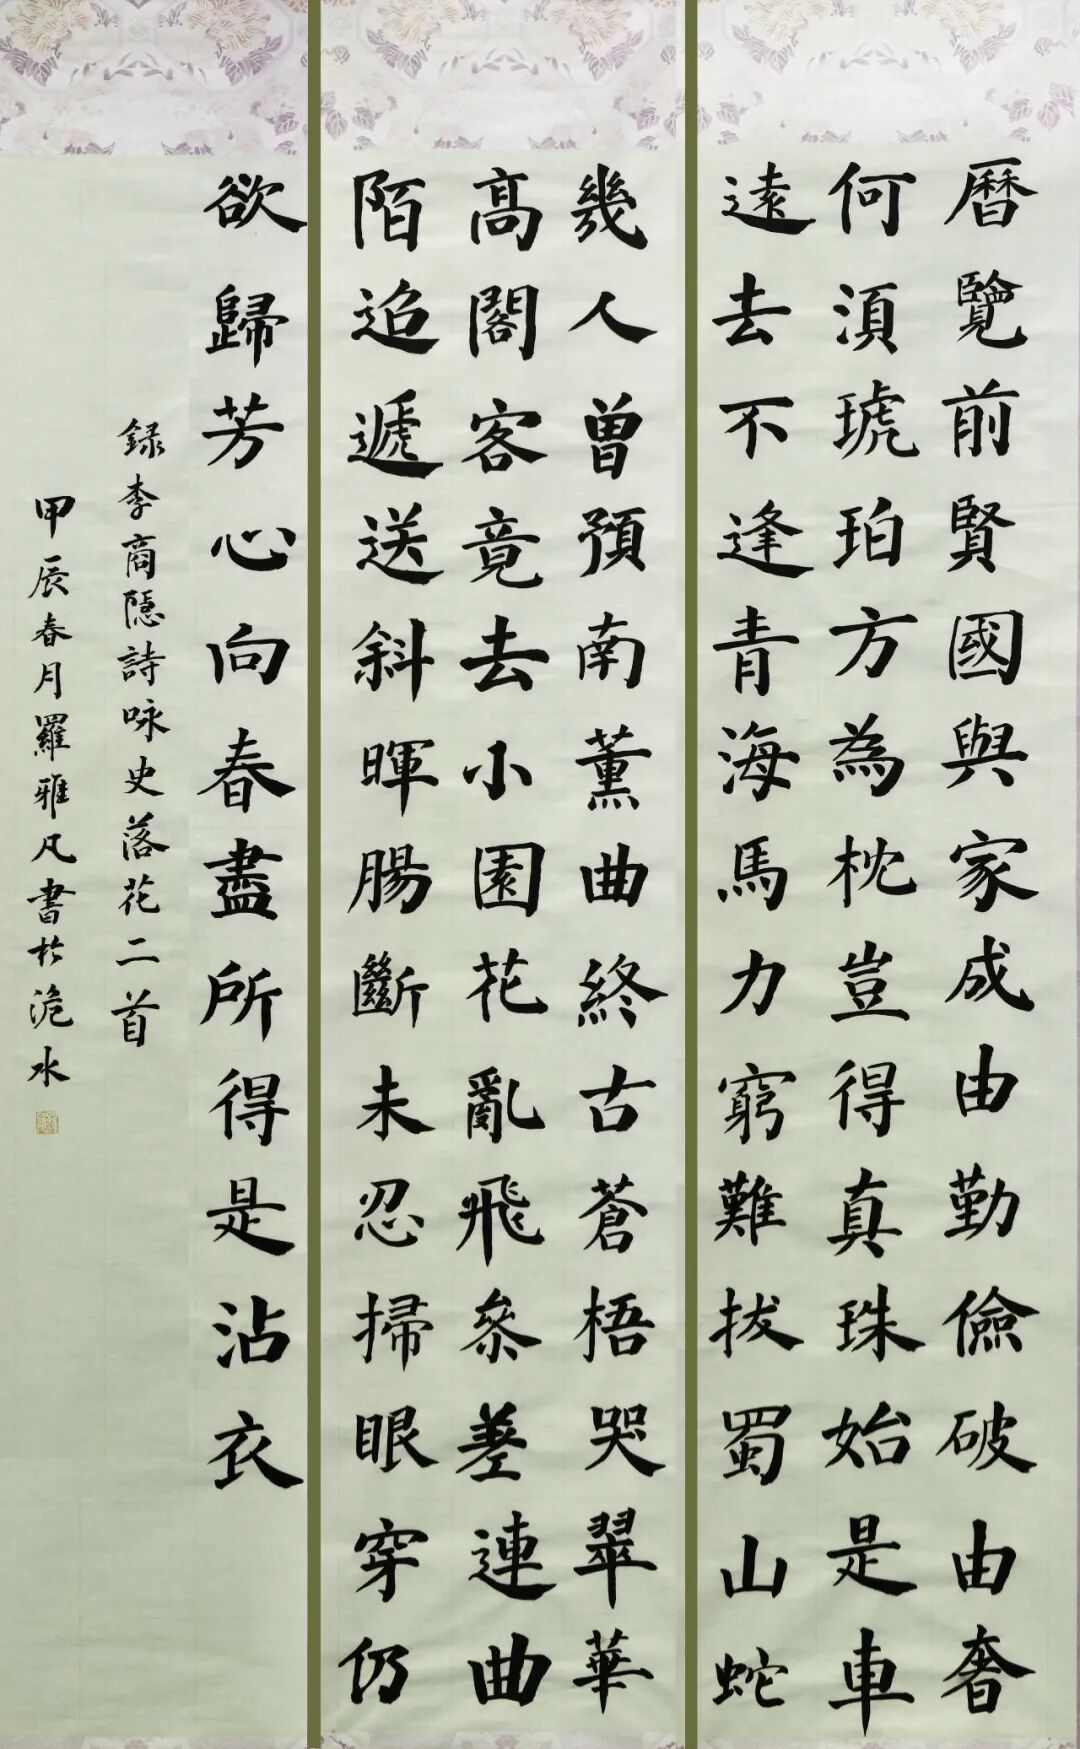 曆覽前賢國與家成由勤儉破由奢
何湏琥珀方為枕豈得真珠始是車
遠去不逢青海馬力窮難拔蜀山蛇
幾人曾預南薰曲終古蒼梧哭翠華
髙閣客竟去小園花亂飛參差連曲
陌迢遞送斜暉腸斷未忍掃眼穿仍
欲歸芳心向春盡所得是沾衣
録李商隱詩咏史落花二首
甲辰春月羅雅凡書於水